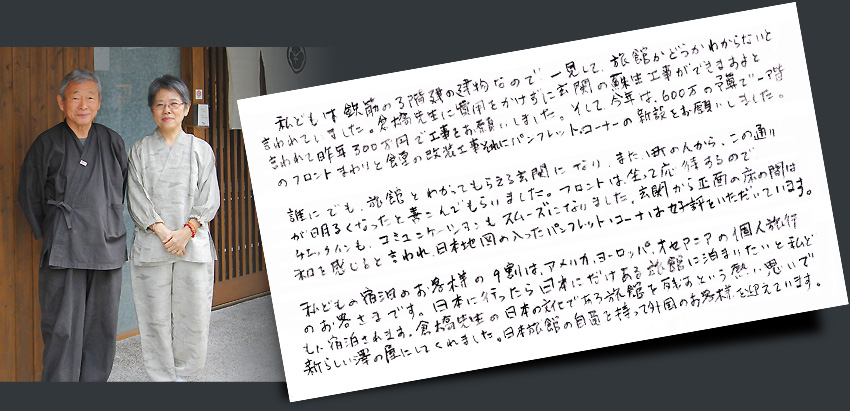 私どもは鉄筋の3階建の建物なので、一見して、旅館かどうかわからないと
言われていました。倉橋先生に費用をかけずに玄関の蘇生工事ができますよと
言われて昨年300万円で工事をお願いしました。そして今年は、600万の予算で一階
のフロントまわりと食堂の改装工事それにパンフレットコーナーの新設をお願いしました。
誰にでも、旅館とわかってもらえる玄関になり、また、町の人から、この通り
が明るくなったと喜こんでもらいました。フロントは、坐って応待するので
チェックインも、コミュニケーションもスムーズになりました。玄関から正面の床の間は
和を感じると言われ、日本地図の入ったパンフレット・コーナーは好評をいただいています。
私どもの宿泊のお客様の9割は、アメリカ、ヨーロッパ、オセアニアの個人旅行
のお客さまです。日本に行ったら日本にだけある旅館に泊まりたいと私ど
もに宿泊されます。倉橋先生の日本の文化である旅館を残すという熱い思いで
新らしい澤の屋にしてくれました。日本旅館の自信を持って外国のお客様を迎えています。